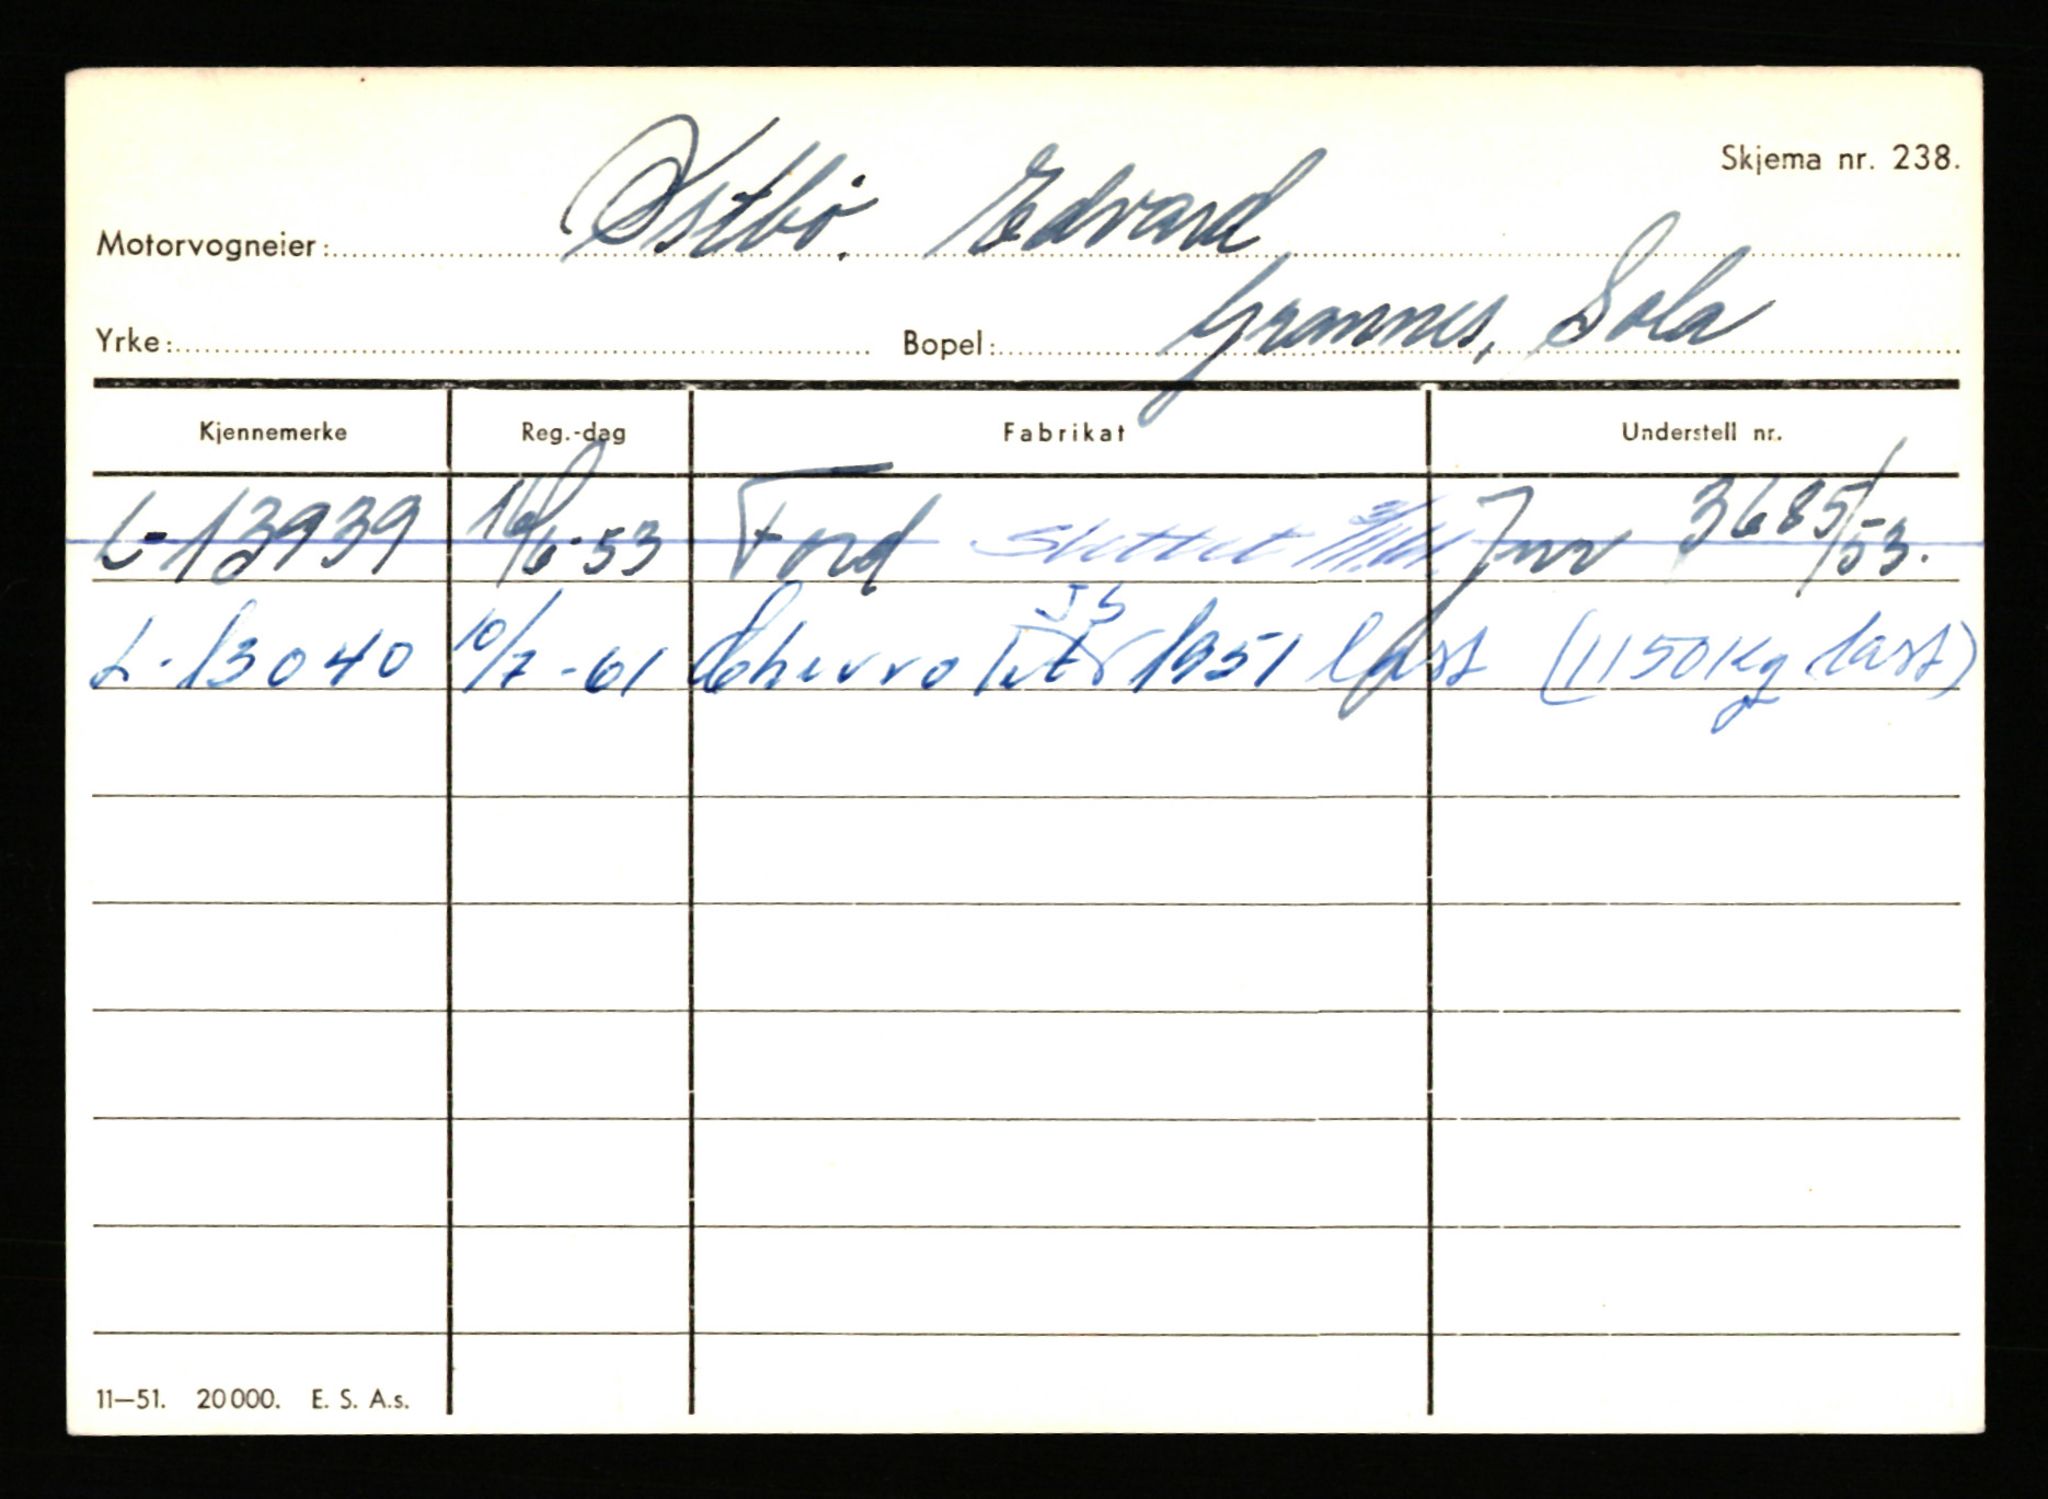 Skjema nr. 238.
Motorvogneier: Østbø, Edvard
Yrke: Bopel: Grannes, Sola
Kjennemerke Reg.-dag Fabrikat Understell nr.
L-13939 16/6-53 Ford Slettet Jnr 3685/53.
L-13040 10/7-61 Chevrolet 1951 last (1150 kg last)
11—51. 20000. E. S. A.s.